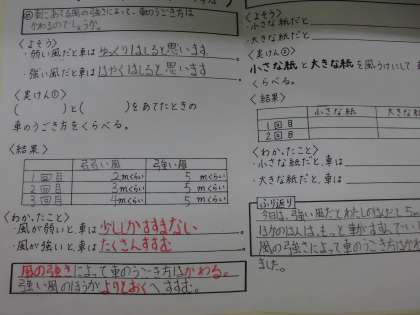 問 おこる風の強さによって、車のうごき方は
かわるのでしょうか。
〈よそう〉
・弱い風だと車は ゆっくりはしると思います
・強い風だと車は はやくはしると思います
〈実けん①〉
( )と( )をあてたときの
車のうごき方をくらべる。
〈結果〉
弱い風 強い風
1回目 2mくらい 5mくらい
2回目 3mくらい 5mくらい
3回目 4mくらい 5mくらい
〈わかったこと〉
・風が弱いと、車は 少ししかすすまない。
・風が強いと、車は たくさんすすむ。
風の強さによって車のうごき方はかわる。
強い風のほうがよりとおくへすすむ。
〈よそう〉
・小さな紙だと
・大きな紙だと、
〈実けん②〉
小さな紙と大きな紙を風うけにして
くらべる。
〈結果〉
小さな紙 大きな紙
1回目
2回目
〈わかったこと〉
・小さな紙だと、車は
・大きな紙だと、車は
ふり返り
今日は、強い風だとわたしのはんだと5m
ほかのはんは、もっと車がすすむ
風の強さによって車のうごき方はかわ
ました。